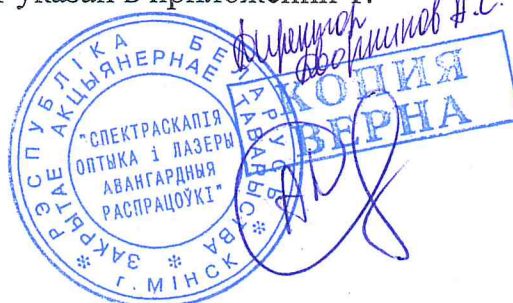 указан в приложении 1.
Директор
Дворников А.С.
КОПИЯ
ВЕРНА
РЭСПУБЛІКА БЕЛАРУСЬ
ЗАКРЫТАЕ АКЦЫЯНЕРНАЕ ТАВАРЫСТВА
"СПЕКТРАСКАПІЯ
ОПТЫКА і ЛАЗЕРЫ
АВАНГАРДНЫЯ
РАСПРАЦОЎКІ"
г. МІНСК